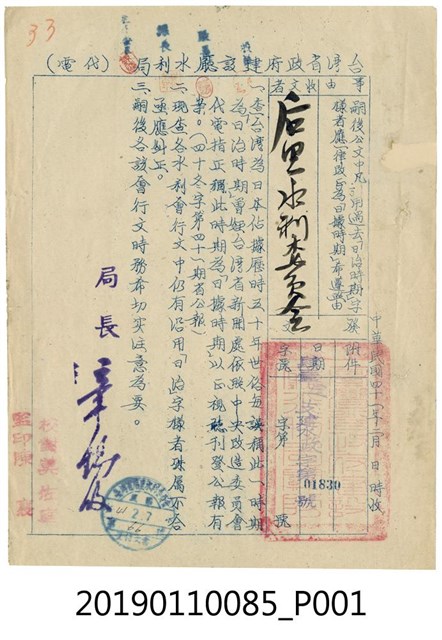 33
台灣省政府建設廳水利局(代電)
事由
嗣後公文中凡引用過去「日治時期」字
樣者應一律改正為「日據時期」希遵照由
收文者
后里水利委員會
附件
中華民國四十一年二月 日 時收
日期
字號
字第 號
01830
一、查台灣為日本佔據歷時五十年世俗每誤稱此一時期
為「日治時期」曾經台灣省新聞處依照中央改造委員會
代電指正稱此時期為「日據時期」以正視聽刊登公報有
案。(四十冬字第四十一期省公報)
二、現查各水利會行文中仍有沿用「日治」字樣者殊屬不合
亟應糾正。
三、嗣後各該會行文時務希切实注意為要。
局長 章錫綬
監印陳
20190110085_P001